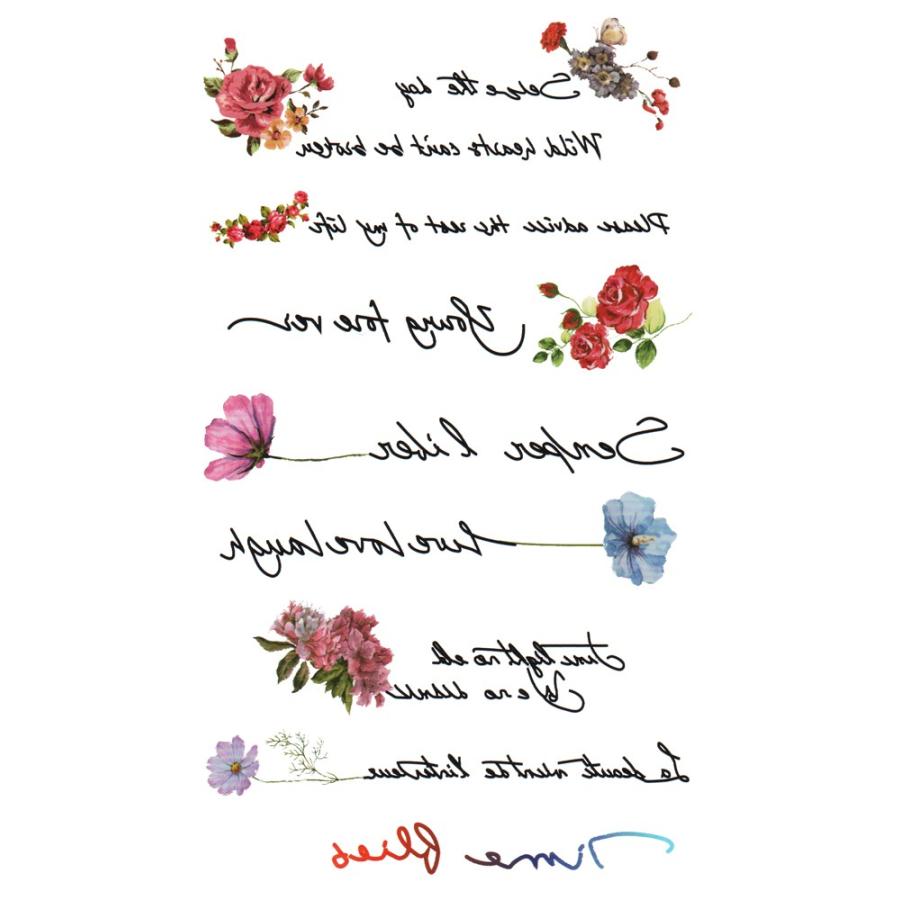 Seize the day
Wild hearts can't be broken
Please advice the rest of my life
Young fore ver
Semper liber
live love laugh
Time light
La beauté vient de l'interieur
Time flies